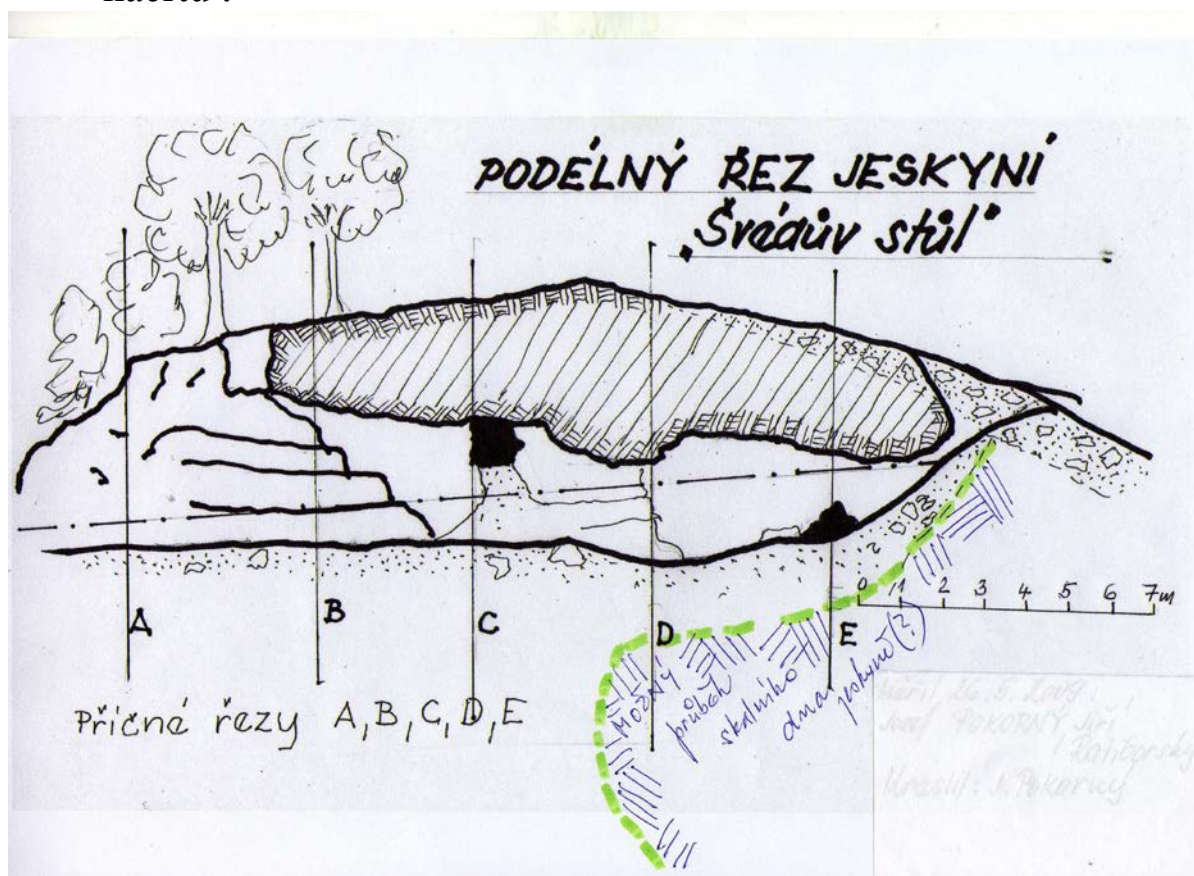 PODÉLNÝ ŘEZ JESKYNÍ
„Švédův stůl"
A
B
C
D
E
0 1 2 3 4 5 6 7m
Příčné řezy A, B, C, D, E
Možný
průběh
skalního
dna
jeskyně (?)
Měřil 26. 5. 2009:
Josef POKORNÝ, Jiří
Ratiborský
Kreslil: J. Pokorný